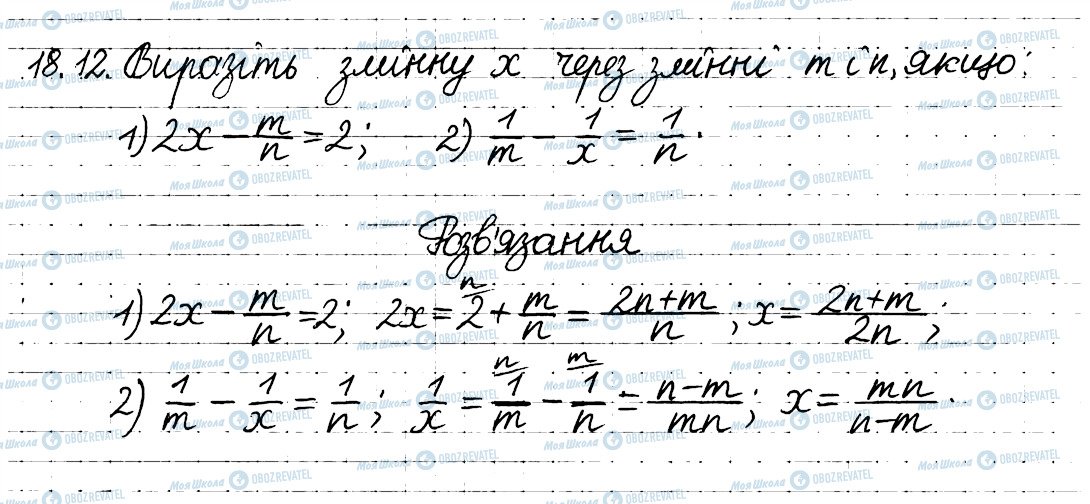 18.12. Виразіть змінну x через змінні m і n, якщо:
1) 2x − m/n = 2; 2) 1/m − 1/x = 1/n.
Розв'язання
1) 2x − m/n = 2; 2x = 2^n + m/n = (2n+m)/n; x = (2n+m)/(2n);
2) 1/m − 1/x = 1/n; 1/x = 1^n/m − 1^m/n = (n−m)/(mn); x = (mn)/(n−m).
Моя Школа OBOZREVATEL